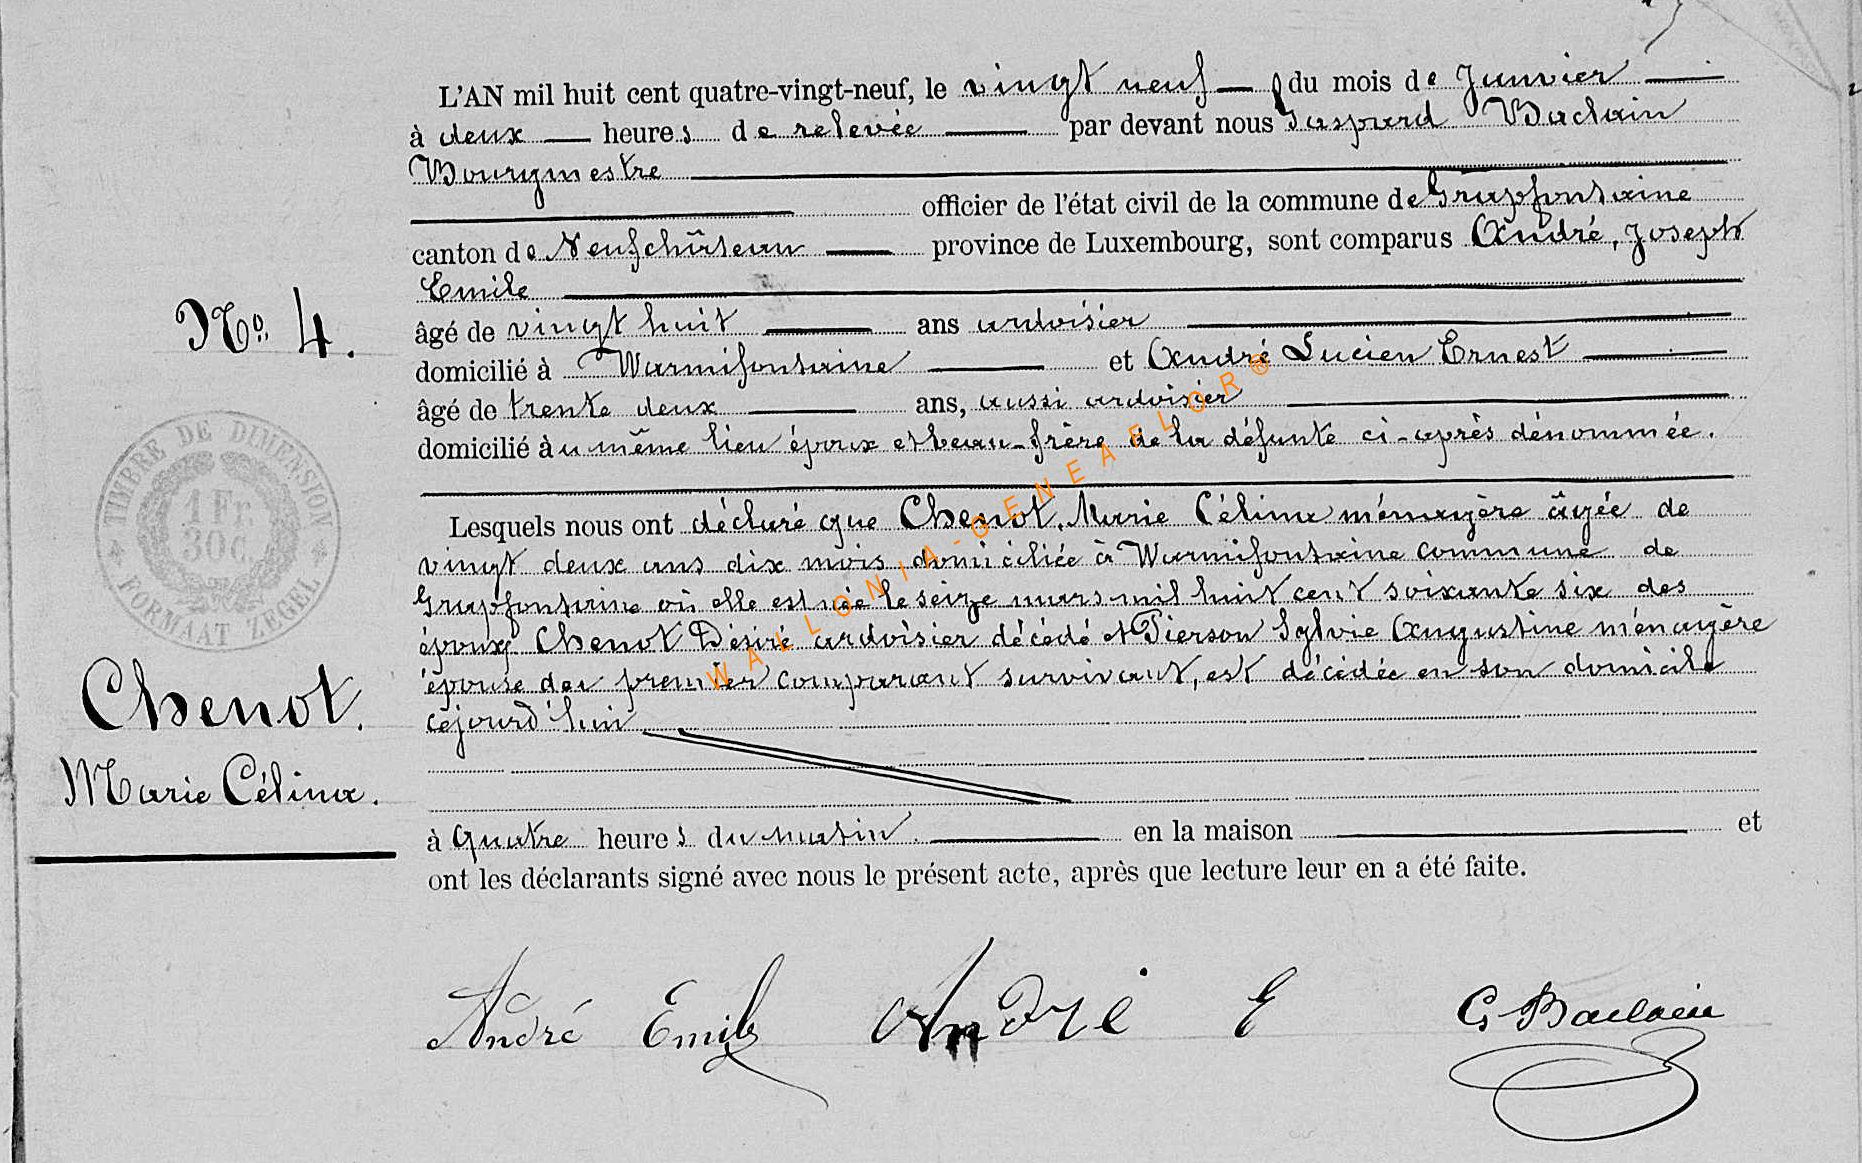 L'AN mil huit cent quatre-vingt-neuf, le vingt neuf du mois de Janvier
à deux heures de relevée par devant nous Gaspard Baclain
Bourgmestre
officier de l'état civil de la commune de Grapfontaine
canton de Neufchâteau province de Luxembourg, sont comparus André, Joseph
Emile
âgé de vingt huit ans ardoisier
domicilié à Warmifontaine et André Lucien Ernest
âgé de trente deux ans, aussi ardoisier
domicilié au même lieu époux et beau-frère de la défunte ci-après dénommée.
Lesquels nous ont déclaré que Chenot, Marie Célina ménagère âgée de
vingt deux ans dix mois domiciliée à Warmifontaine commune de
Grapfontaine où elle est née le seize mars mil huit cent soixante six des
époux Chenot Désiré ardoisier décédé et Pierson Sylvie Augustine ménagère
épouse du premier comparant survivant, est décédée en son domicile
cejourd'hui
à quatre heures du matin. en la maison et
ont les déclarants signé avec nous le présent acte, après que lecture leur en a été faite.
André Emile André E G Baclain
No. 4.
TIMBRE DE DIMENSION
1 Fr
30 c.
FORMAAT ZEGEL
Chenot.
Marie Célina.
WALLONIA-GENEAFLOR®